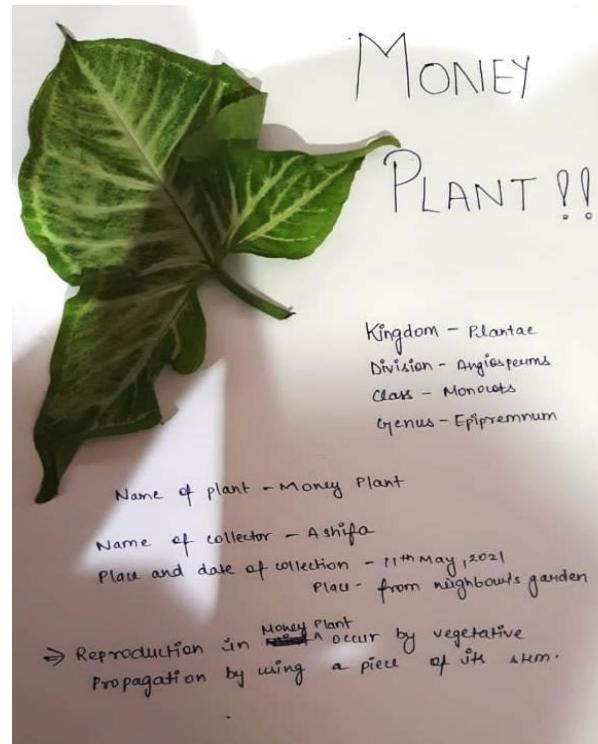 MONEY
PLANT !!
Kingdom - Plantae
Division - Angiosperms
Class - Monocots
Genus - Epipremnum
Name of plant - Money Plant
Name of collector - Ashifa
Place and date of collection - 11th May, 2021
Place - from neighbour's garden
⇒ Reproduction in Money Plant occur by vegetative
Propagation by using a piece of its stem.